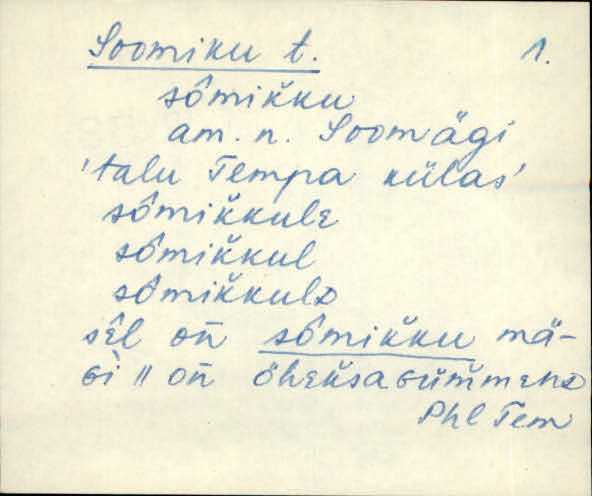 Soomiku t. 1.
sômik̆ku
am. n. Soomägi
'talu Tempa külas'
sômik̆kule
sômik̆kul
sômik̆kulᴅ
sêl on̆ sômik̆ku mä-
ɢì || on̆ öheksaɢüm̆menᴅ
Phl Tem